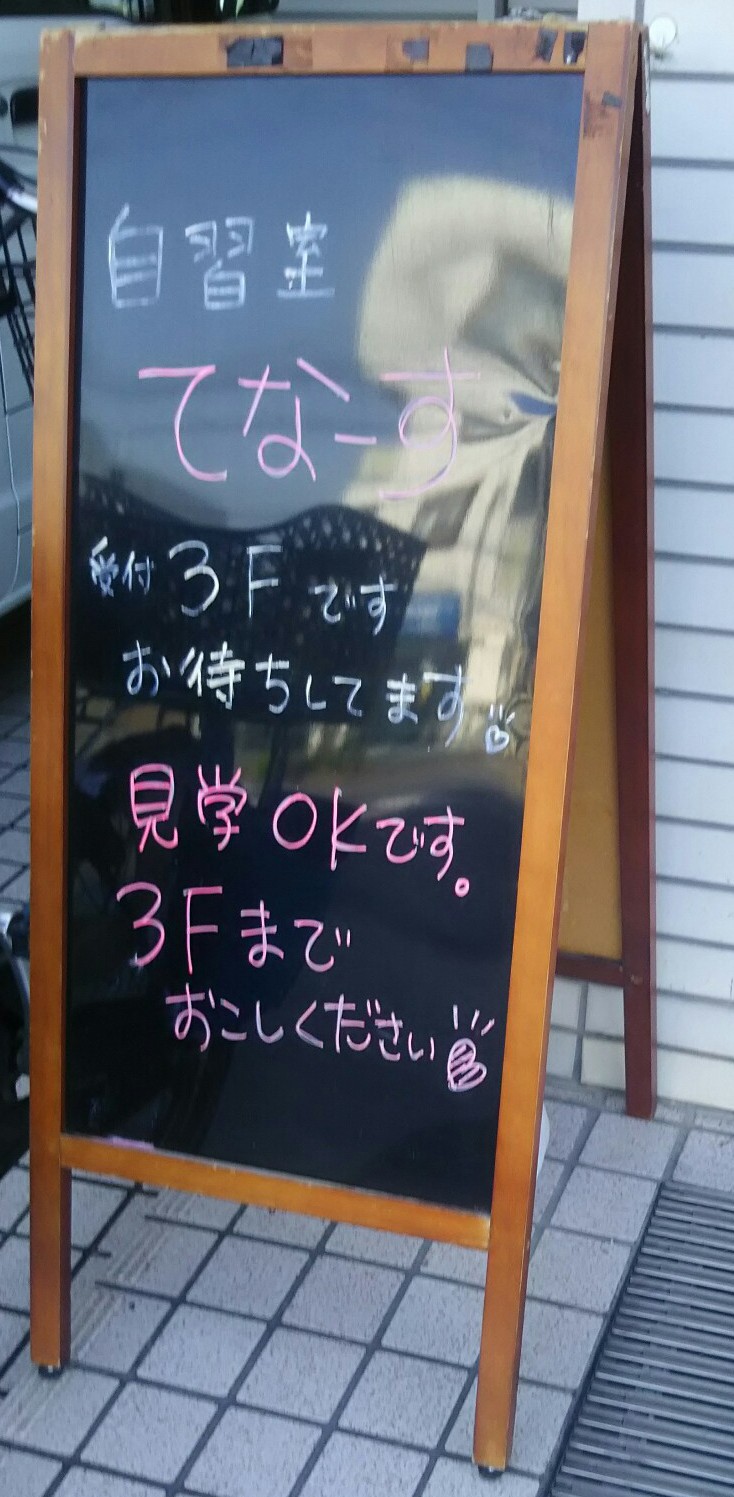 自習室
てなーす
受付 3F です
お待ちしてます
見学 OKです。
3Fまで
おこしください